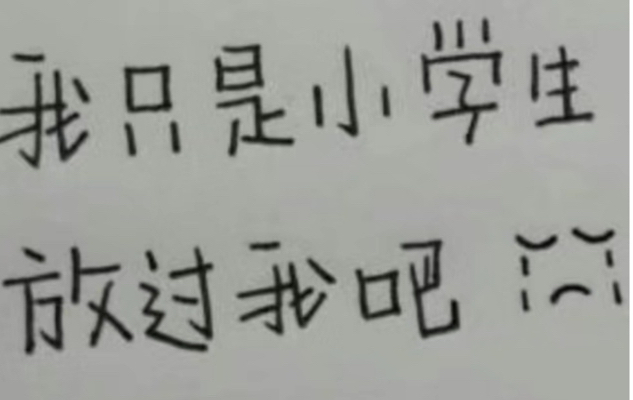 我只是小学生
放过我吧